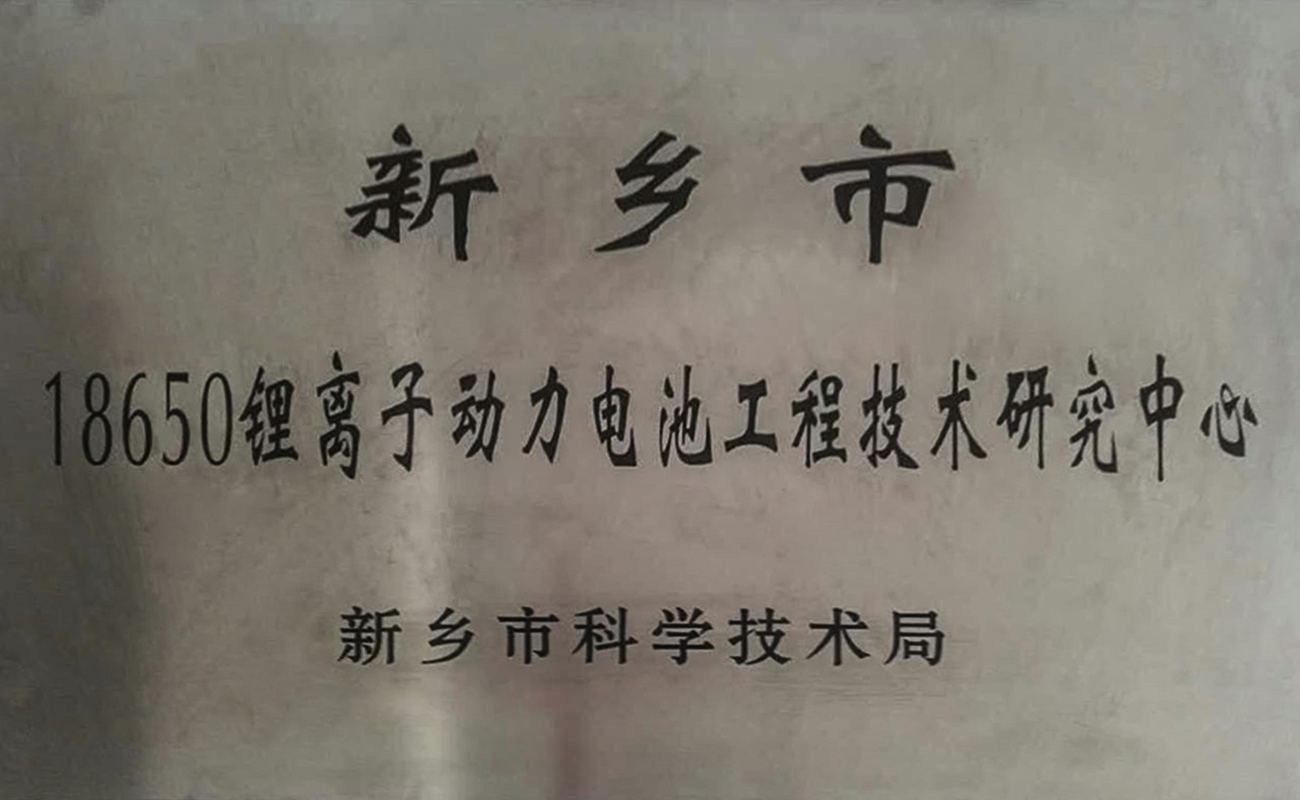 新乡市
18650锂离子动力电池工程技术研究中心
新乡市科学技术局